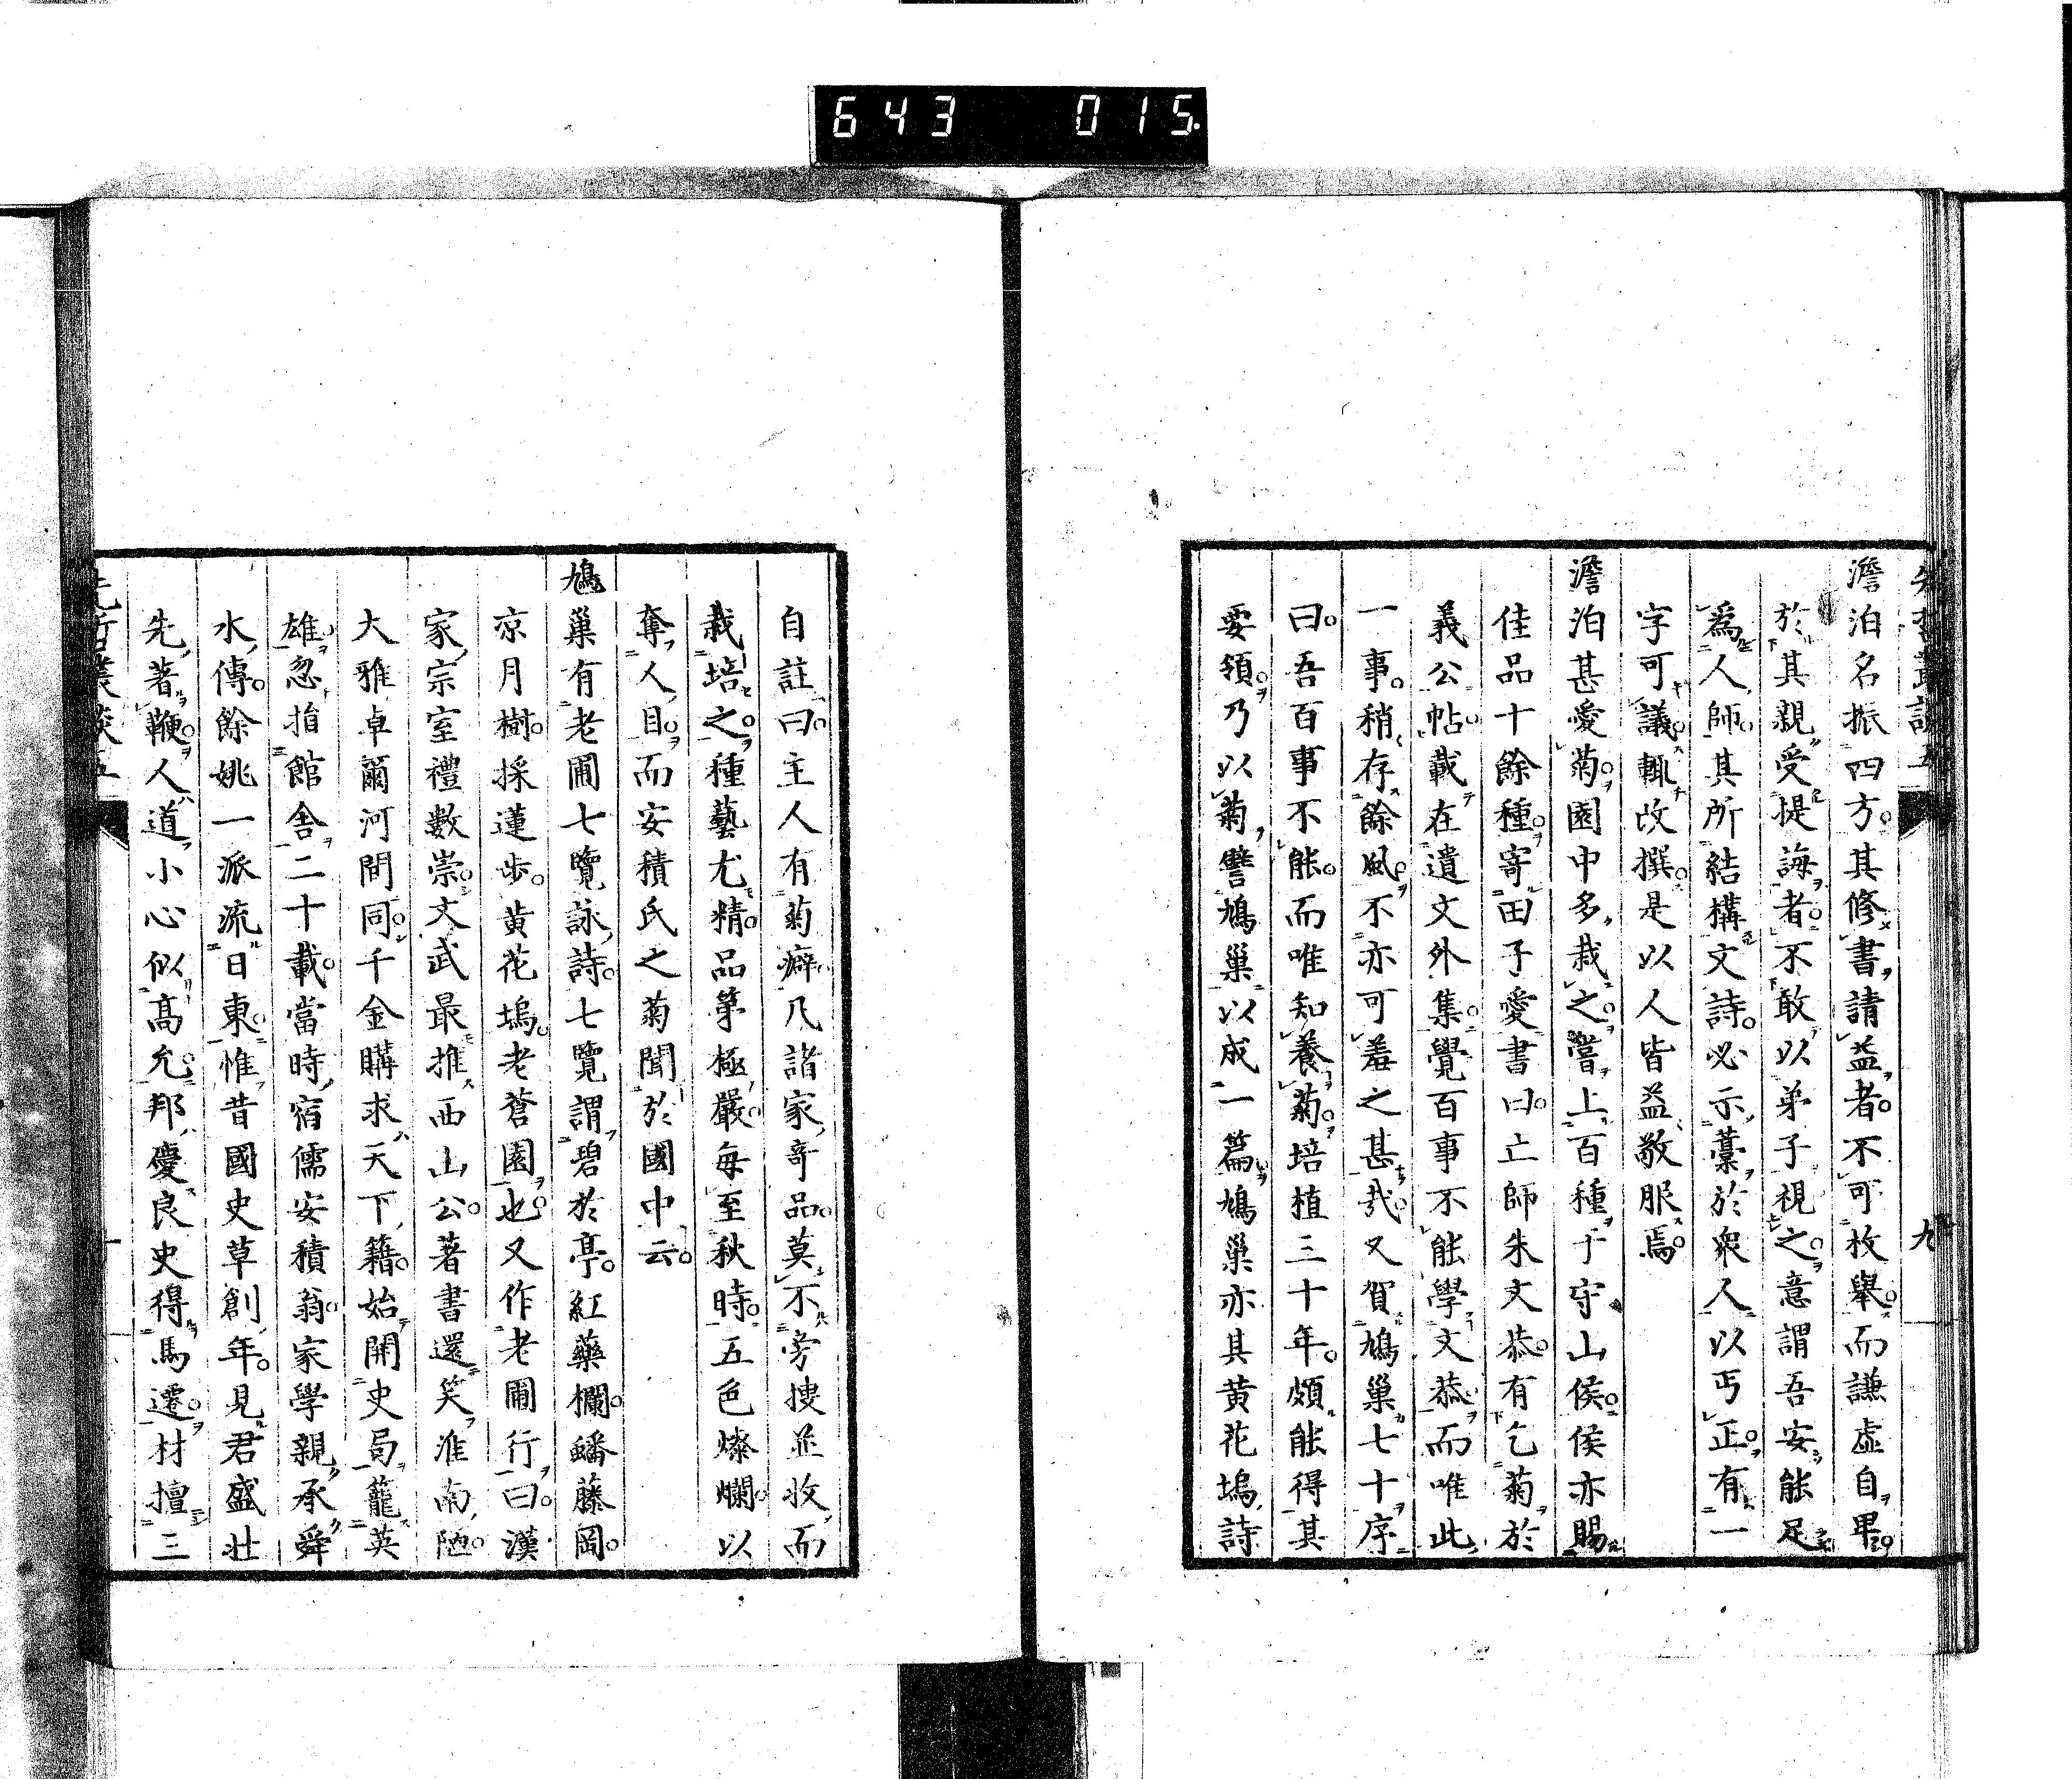 643 015
九
澹泊名振四方。其修書請益者。不可枚擧。而謙虛自畢。
於其親受提誨者。不敢以弟子視之。意謂吾安能足
爲人師。其所結構文詩。必示藁於衆人以丐正。有一
字可議。輒改撰。是以人皆益敬服焉。
澹泊甚愛菊。園中多栽之。嘗上百種于守山侯。侯亦賜
佳品十餘種。寄田子愛書曰。亡師朱文恭。有乞菊於
義公帖。載在遺文外集。覺百事不能學文恭。而唯此
一事。稍存餘風。不亦可羞之甚哉。又賀鳩巢七十序
曰。吾百事不能。而唯知養菊。培植三十年。頗能得其
要領。乃以菊譬鳩巢。以成一篇。鳩巢亦其黄花塢詩
自註曰。主人有菊癖。凡諸家奇品。莫不旁搜並收。而
栽培之。種藝尤精。品第極嚴。每至秋時。五色燦爛。以
奪人目。而安積氏之菊聞於國中云。
鳩巢有老圃七覽詠詩。七覽謂碧於亭。紅藥欄。蟠藤岡。
凉月樹。採蓮步。黄花塢。老蒼園也。又作老圃行曰。漢
家宗室禮數崇。文武最推西山公。著書還笑淮南陋。
大雅卓爾河間同。千金購求天下籍。始開史局籠英
雄。忽指館舍二十載。當時宿儒安積翁。家學親承舜
水傳。餘姚一派流日東。惟昔國史草創年。見君盛壯
先著鞭。人道小心似高允。邦慶良史得馬遷。材擅三